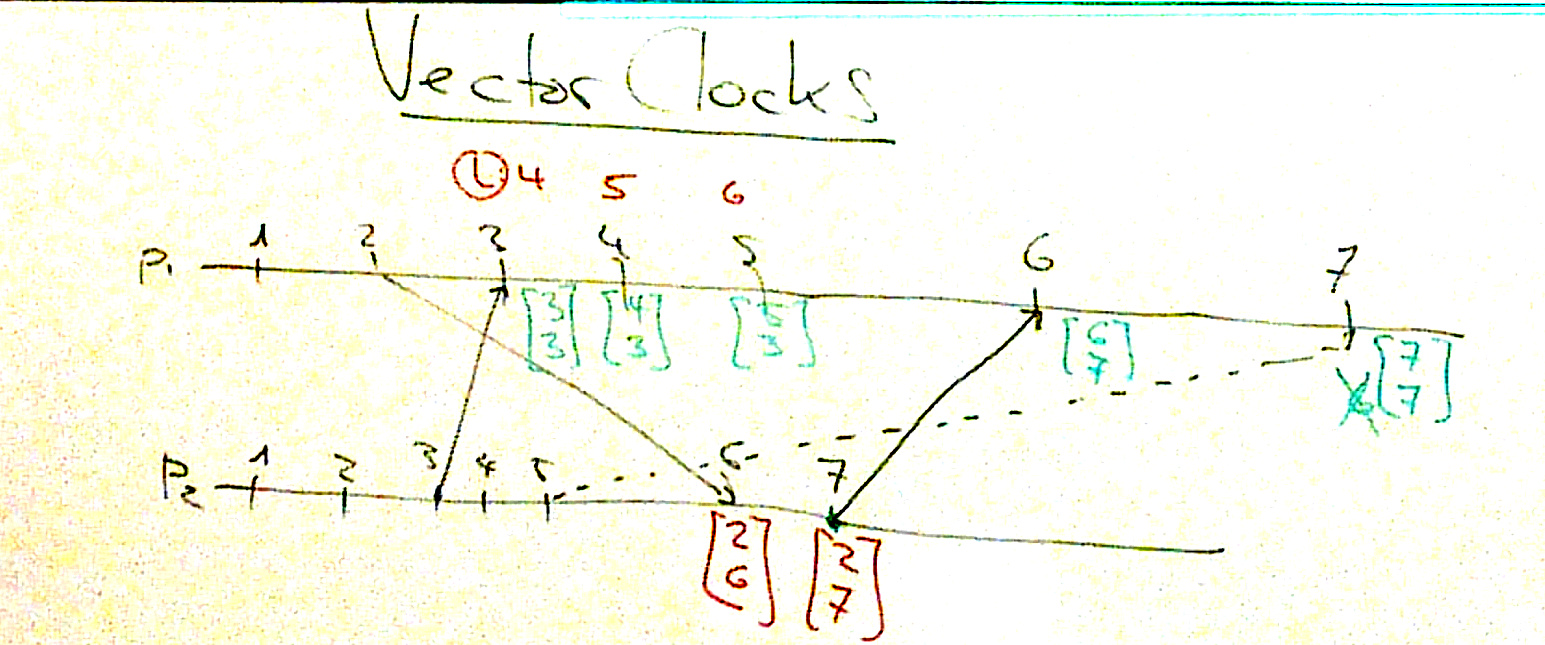 Vector Clocks
L 4 5 6
P1 1 2 3 4 5 6 7
[3 3] [4 3] [5 3] [6 7] [7 7]
P2 1 2 3 4 5 6 7
[2 6] [2 7]